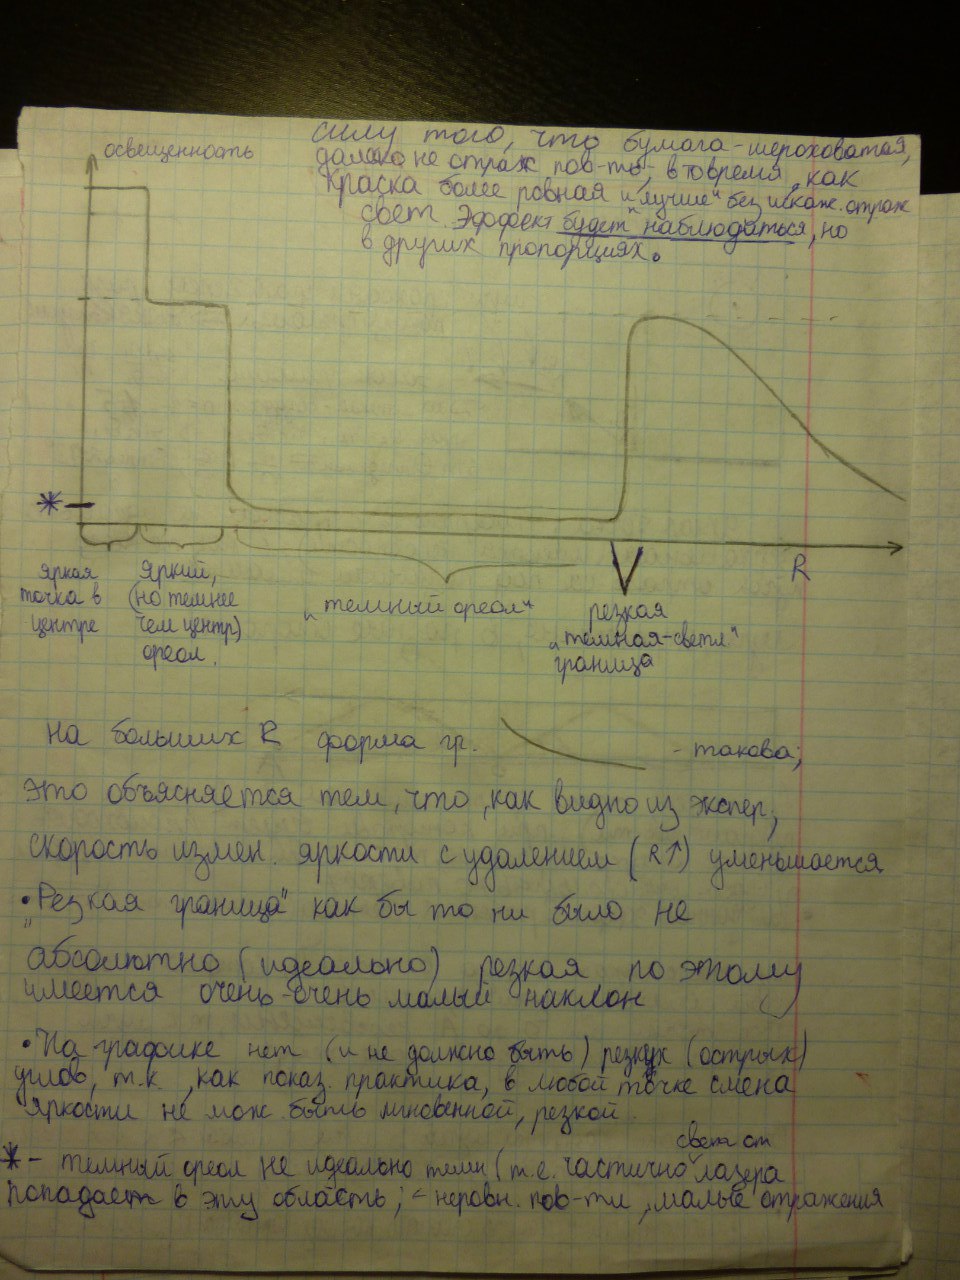 силу того, что бумага-шероховатая,
далеко не отраж пов-ть, в то время, как
краска более ровная и "лучше" без искаж. отраж
свет. Эффект будет наблюдаться, но
в других пропорциях.
освещенность
*
R
яркая
точка в
центре
яркий,
(но темнее
чем центр)
ореол.
"темный ореол"
резкая
"темная-светл"
граница
На больших R форма гр. - такова;
это объясняется тем, что, как видно из экспер,
скорость измен. яркости с удалением (R↑) уменьшается
• "Резкая граница" как бы то ни было не
абсолютно (идеально) резкая по этому
имеется очень-очень малый наклон
• На графике нет (и не должно быть) резких (острых)
углов, т.к., как показ. практика, в любой точке смена
яркости не мож. быть мгновенной, резкой.
* - темный ореол не идеально темн (т.е. частично света от лазера
попадает в эту область; ← неровн. пов-ти, малые отражения